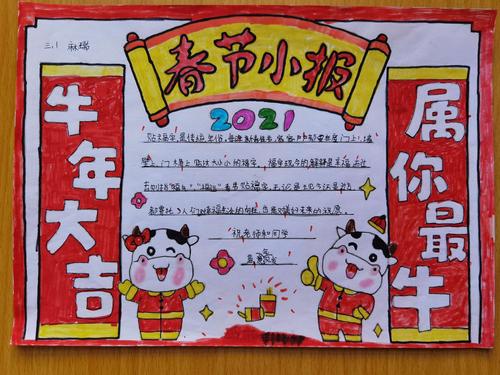 三.1
春节小报
2021
牛年大吉
贴福字,是传统年俗,每逢新春佳节,家家户户都要在屋门上、墙
壁上、门楣上贴大大小小的福字。福字现今的解释是幸福
"福气"、"福运"春节贴福字,无论是现今还是过去
都寄托了人们对幸福生活的向往,也是对美好未来的祝愿。
祝老师和同学
属你最牛